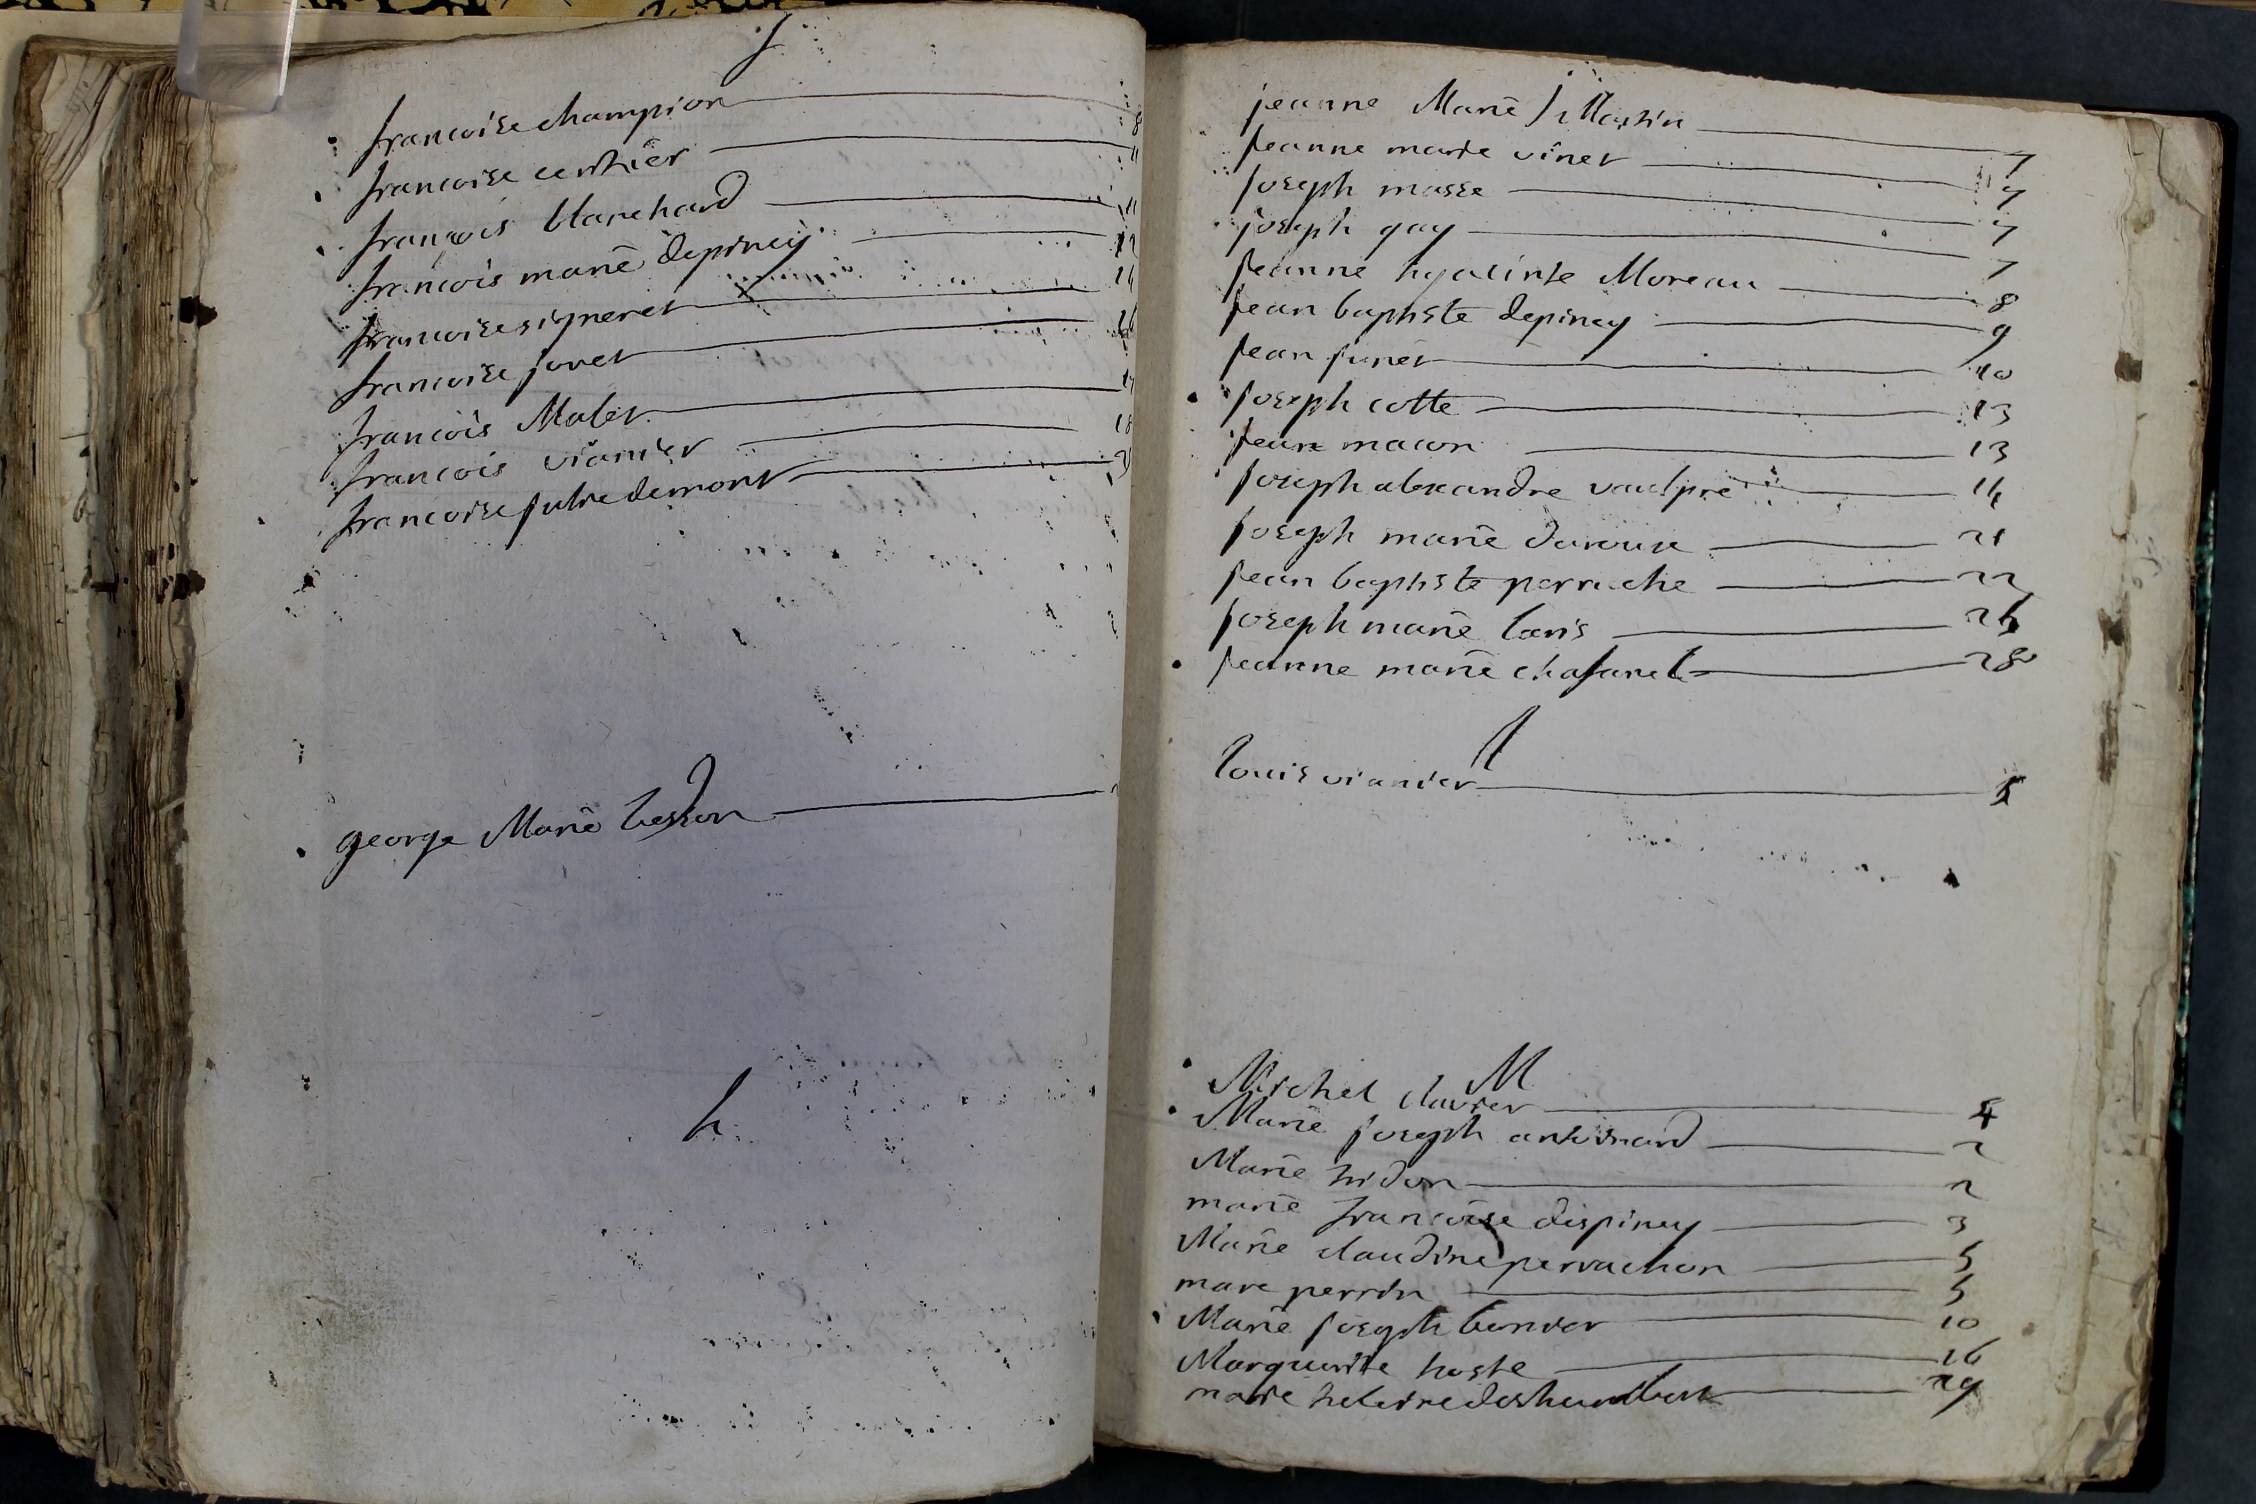 f
francoise champion 8
francoise certhier 11
francois blanchard 11
francois marie depiney 12
francoise signeret 16
francoise jovet 16
francois Malet 17
francois vianier 18
francoise putredemont
g
george Marie besson
h
J
jeanne Marie Martin 7
jeanne marie vinet 7
joseph masse 7
joseph gay 7
jeanne hyacinte Moreau 8
jean baptiste depiney 9
jean junet 10
joseph cotte 13
jean macon 13
joseph alexandre vaulpre 16
joseph marie 21
jean baptiste perruche 22
joseph marie 26
jeanne marie chafanel 28
l
louis vianier 5
M
Michel clavier 4
Marie joseph antoinard 2
Marie tridon 2
marie francoise depiney 3
Marie claudine perrachon 5
marc perrin 5
Marie joseph bernier 10
Marguerite hoste 16
marie